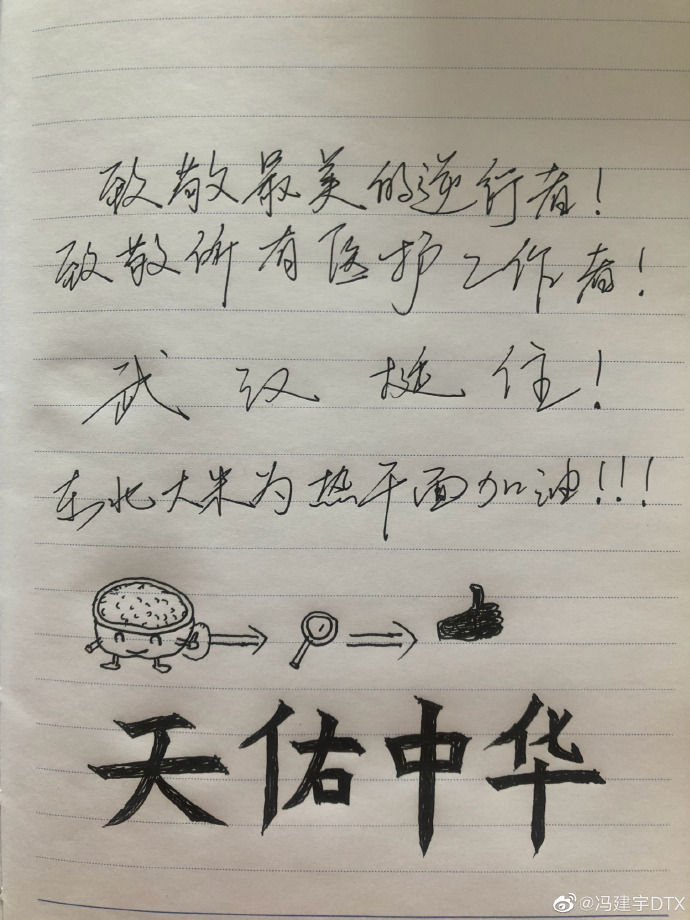 致敬最美的逆行者!
致敬所有医护工作者!
武汉挺住!
东北大米为热干面加油!!!
天佑中华
@冯建宇DTX